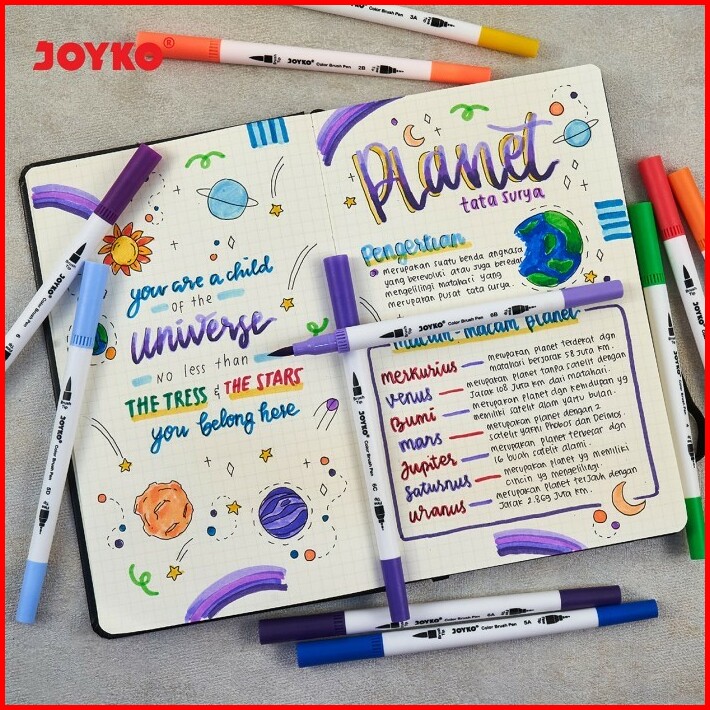 JOYKO®
3A
JOYKO Color Brush Pen 2B
Planet
tata surya
Pengertian
merupakan suatu benda angkasa
yang berevolusi atau juga beredar
mengelilingi matahari yang
merupakan pusat tata surya.
you are a child
of the
universe
no less than
THE TRESS & THE STARS
you belong here
JOYKO Color Brush Pen 6B
macam-macam planet
merkurius
merupakan planet terdekat dgn
matahari berjarak 58 juta km.
venus
merupakan planet tanpa satelit dengan
jarak 108 juta km dari matahari.
Bumi
merupakan planet dgn kehidupan yg
memiliki satelit alam yaitu bulan.
mars
merupakan planet dengan 2
satelit yarni Phobos dan Deimos.
Jupiter
merupakan planet terbesar dgn
16 buah satelit alami.
saturnus
merupakan planet yg memiliki
cincin yg mengelilingi.
uranus
merupakan planet terjauh dengan
jarak 2.869 juta km.
Brush Tip
Color Brush Pen
Brush Tip
JOYKO Color Brush Pen 5D
Brush Tip
JOYKO Color Brush Pen 6C
JOYKO Color Brush Pen 6A
Brush Tip
JOYKO Color Brush Pen 5A